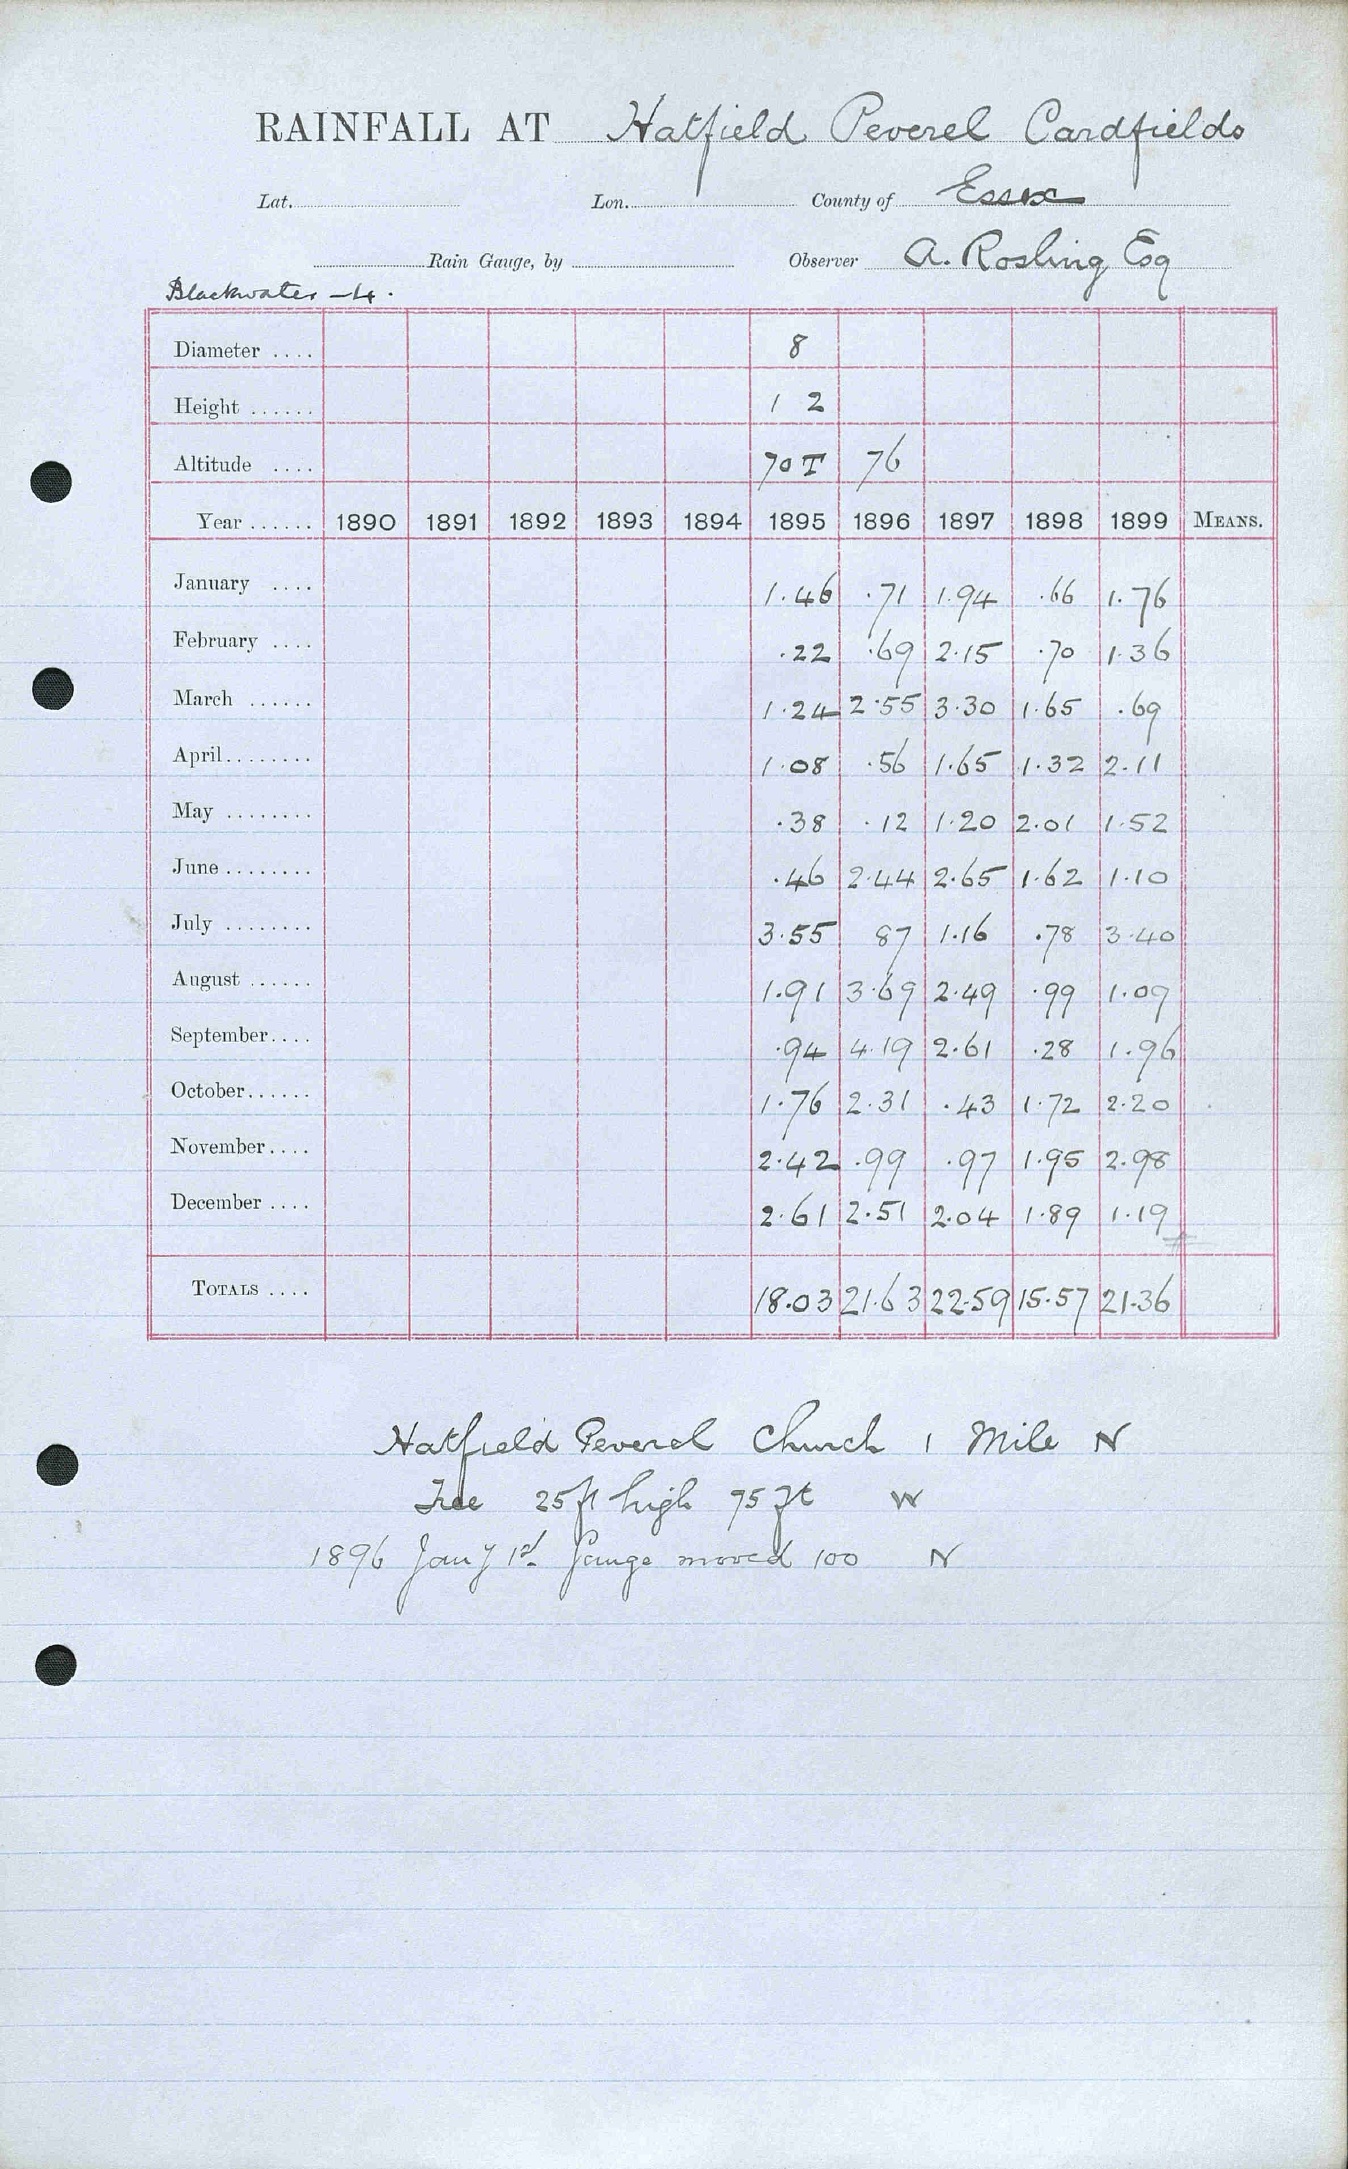 RAINFALL AT Hatfield Peverel Cardfields
Lat. Lon. County of Essex
Rain Gauge, by Observer A. Rosling Esq
Blackwater - 4.
Diameter .... 8
Height ...... 1 2
Altitude .... 70 T 76
Year ...... 1890 1891 1892 1893 1894 1895 1896 1897 1898 1899 MEANS.
January .... 1.46 .71 1.94 .66 1.76
February .... .22 .69 2.15 .70 1.36
March ...... 1.24 2.55 3.30 1.65 .69
April........ 1.08 .56 1.65 1.32 2.11
May ........ .38 .12 1.20 2.01 1.52
June ........ .46 2.44 2.65 1.62 1.10
July ........ 3.55 87 1.16 .78 3.40
August ...... 1.91 3.69 2.49 .99 1.09
September.... .94 4.19 2.61 .28 1.96
October...... 1.76 2.31 .43 1.72 2.20
November.... 2.42 .99 .97 1.95 2.98
December .... 2.61 2.51 2.04 1.89 1.19
TOTALS .... 18.03 21.63 22.59 15.57 21.36
Hatfield Peverel Church 1 Mile N
Tree 25 ft high 75 ft W
1896 Jany 1st Gauge moved 100 N